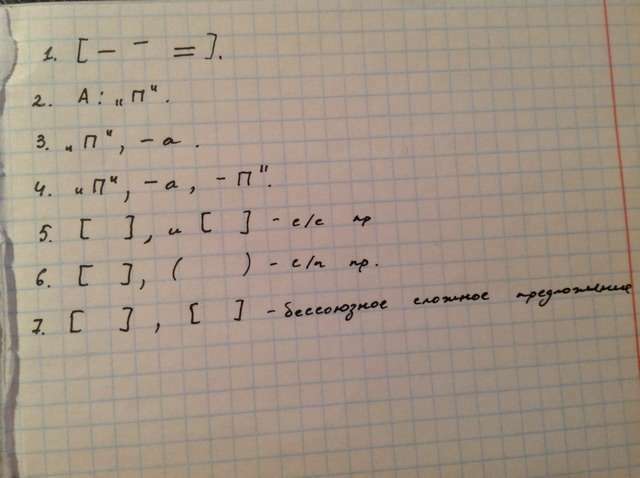 1. [ — — = ].
2. А: „П“.
3. „П“, – а.
4. „П“, – а, – П“.
5. [ ], и [ ] – с/с пр
6. [ ], ( ) – с/п пр.
7. [ ], [ ] – бессоюзное сложное предложение